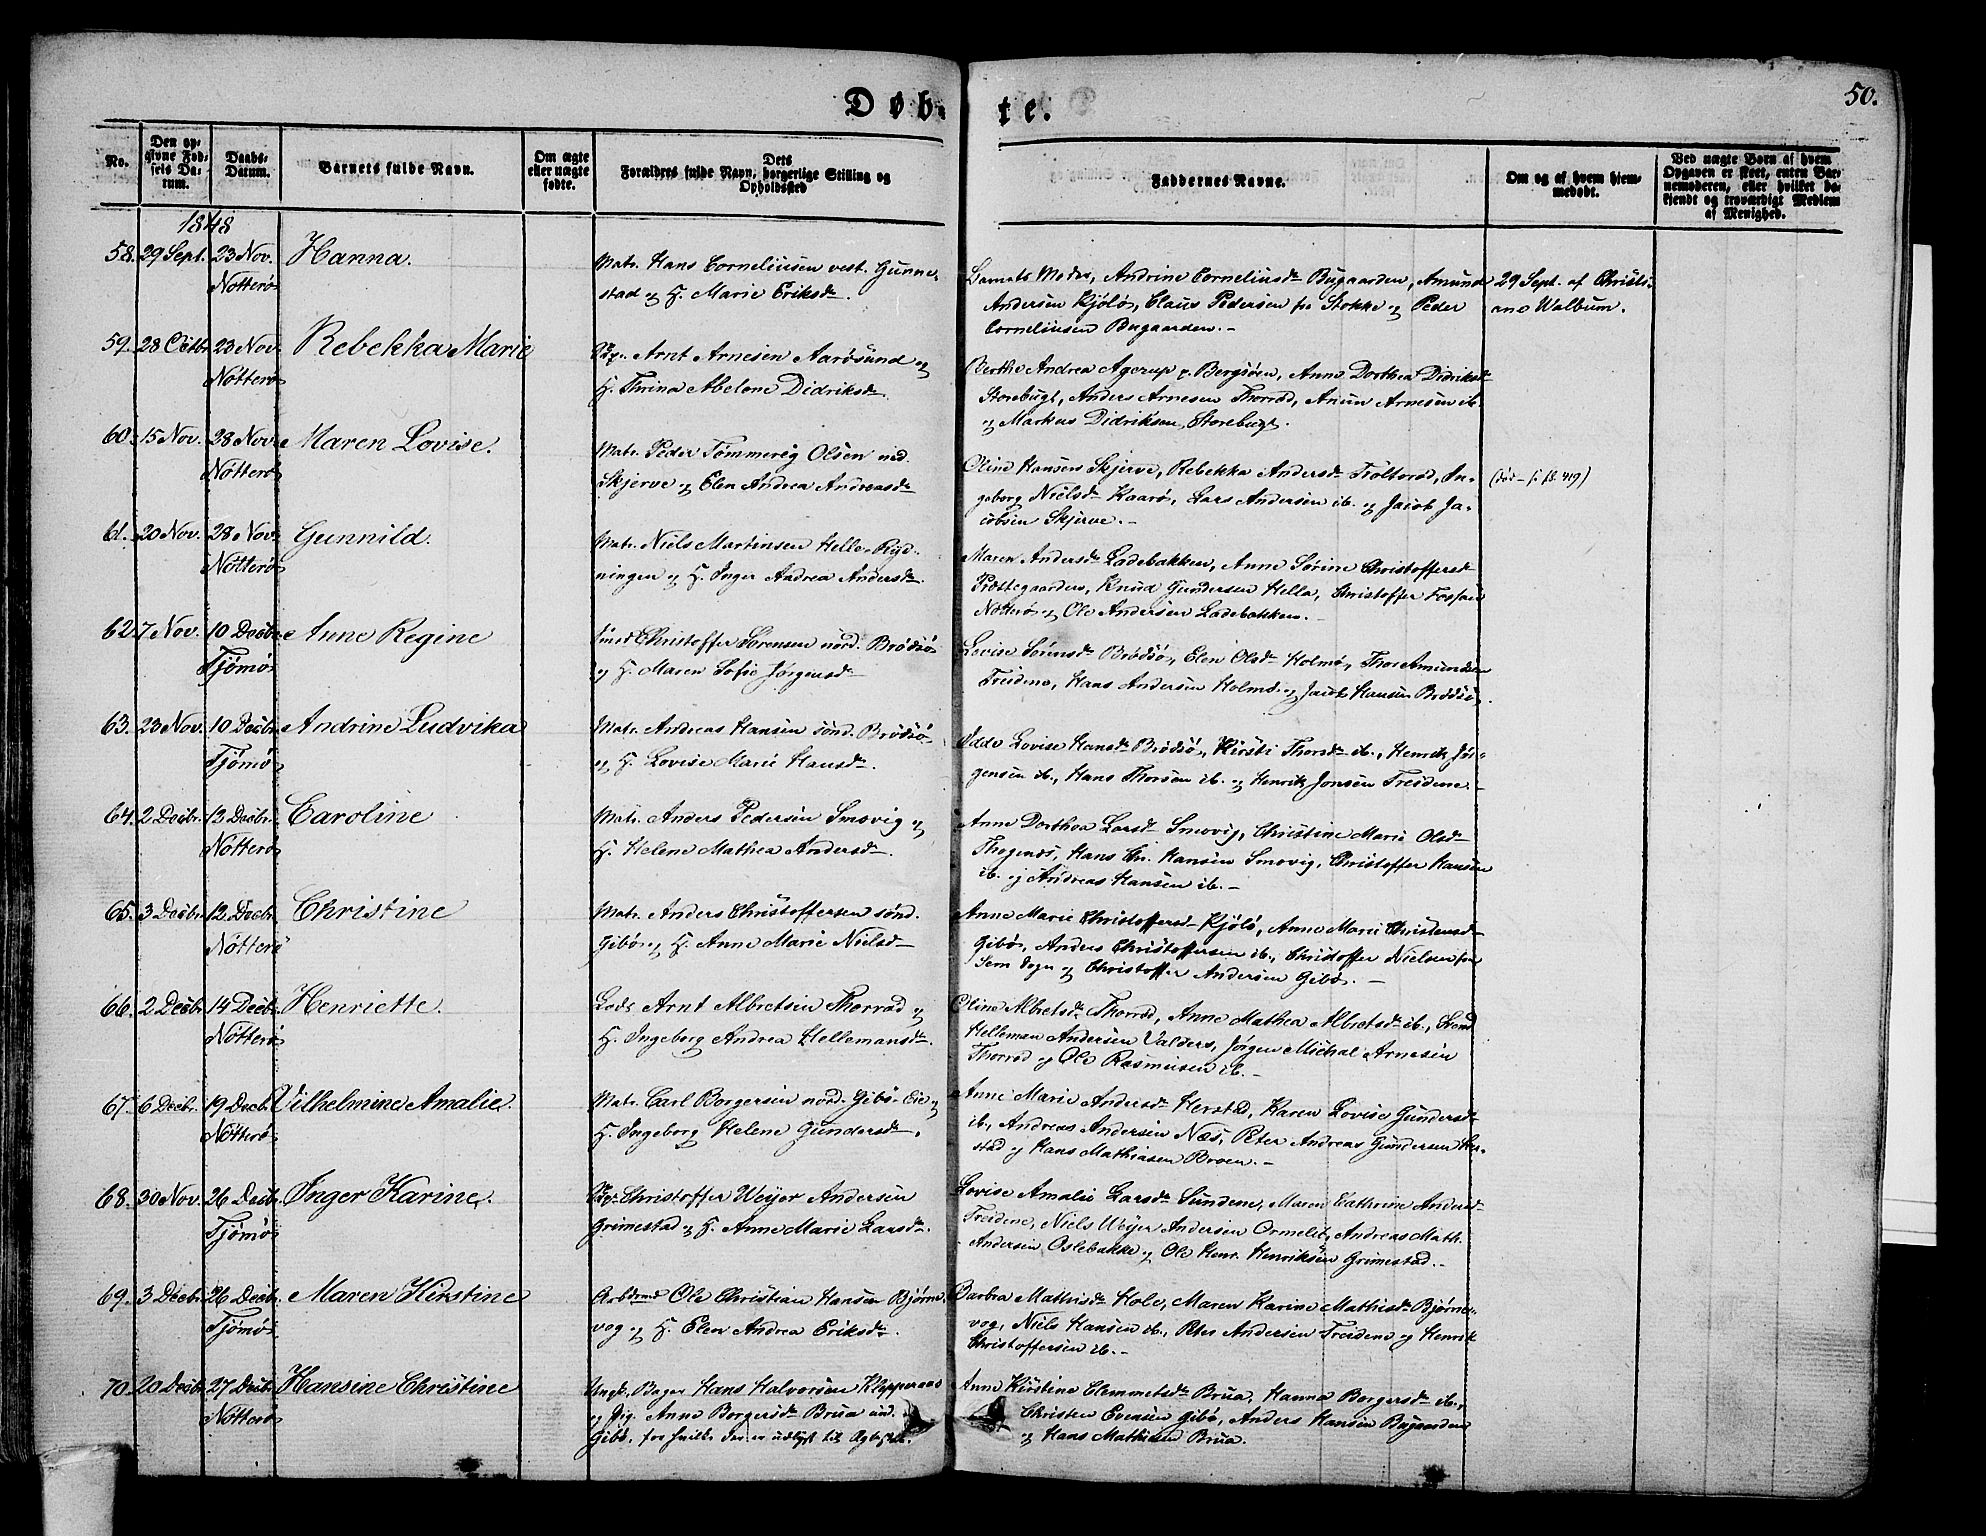 Døb-
te.
50.
No.
Den op-
givne Fød-
sels Da-
tum.
Daabs-
Datum.
Barnets fulde Navn.
Om ægte
eller uægte
fødte.
Dets
Forældres fulde Navn, borgerlige Stilling og
Opholdssted
Faddernes Navne.
Om og af hvem hjem-
medøbt.
Ved uægte Børn af hvem
Opgaven er skeet, enten Bar-
nemoderen, eller hvilket be-
kjendt og troværdigt Medlem
af Menighed.
1848
58. 29 Sept. 23 Nov. Hanna.
Nötterö
Matr. Hans Corneliusen vest. Gunne-
stad og H. Marie Eriksd.
Barnets Moder, Andrine Corneliusd. Bugaarden, Amund
Andersen Kjölö, Claus Pedersen fra Stokke og Peder
Corneliusen Bugaarden.-
29 Sept. af Christi-
ane Walbum.
59. 28 Octb. 23 Nov. Rebekka Marie
Nötterö
Arnt Arnesen Aarösund og
H. Thrina Abelone Didriksd.
Berthe Andrea Agerup p. Bergsöen, Anne Dorthea Didriksd.
Storebugt, Anders Arnesen Thorröd, Anun Arnesen ib.
og Markus Didriksen, Storebugt.
60. 15 Nov. 28 Nov. Maren Lovise.
Nötterö
Matr. Peder Tömmerög Olsen ned.
Skjerve og Elen Andrea Andreasd.
Oline Hansen Skjerve, Rebekka Andersd. Troltröd, In-
geborg Nielsd. Kaarö, Lars Andersen ib. og Jacob Ja-
cobsen Skjerve.-
61. 20 Nov. 28 Nov. Gunnild.
Nötterö
Matr. Niels Martinsen Hella-Ryd-
ningen og H. Inger Andrea Andersd.
Maren Andersd. Ladebakken, Anne Sörine Christoffersd.
Prestegaarden, Knud Gundersen Hella, Christoffer Fossan
Nötterö og Ole Andersen Ladebakken.-
62. 7 Nov. 10 Decbr. Anne Regine
Tjömö
Christoffer Sörensen nord. Brödsö
og H. Maren Sofie Jörgensd.
Lovise Sörensd. Brödsö, Elen Olsd. Holmö, Thor Amundsen
Treidene, Hans Andersen Holmö og Jacob Hansen Brödsö.
63. 23 Nov. 10 Decbr. Andrine Ludvika
Tjömö
Matr. Andreas Hansen sönd. Brödsö
og H. Lovise Marie Hansd.
Lovise Hansd. Brödsö, Kirsti Thorsd. ib., Henrik Jör-
gensen ib., Hans Thorsen ib. og Henrik Jonsen Treidene.-
64. 2 Decbr. 12 Decbr. Caroline
Nötterö
Matr. Anders Pedersen Smovig og
H. Helene Mathea Andersd.
Anne Dorthea Larsd. Smovig, Christine Marie Olsd.
Thogenes, Hans Chr. Hansen Smovig, Christoffer Hansen
ib. og Andreas Hansen ib.-
65. 3 Decbr. 12 Decbr. Christine
Nötterö
Matr. Anders Christoffersen sönd.
Gibö og H. Anne Marie Nielsd.
Anne Marie Christoffersd. Kjölö, Anne Marie Christensd.
Gibö, Anders Christoffersen ib., Christoffer Nielsen fra
Sem Sogn og Christoffer Andersen Gibö.-
66. 2 Decbr. 14 Decbr. Henriette.
Nötterö
Lods Arnt Albretsen Thorröd og
H. Ingeborg Andrea Hellemansd.
Oline Albretsd. Thorröd, Anne Mathea Albretsd. ib.,
Helleman Andersen Valders, Jörgen Michal Arnesen
Thorröd og Ole Rasmusen ib.-
67. 6 Decbr. 19 Decbr. Vilhelmine Amalie.
Nötterö
Matr. Carl Borgersen nord. Gibö-Eie og
H. Ingeborg Helene Gundersd.
Anne Marie Andersd. Herstad, Karen Lovise Gundersd.
ib., Andreas Andersen Næs, Peter Andreas Gundersen Her-
stad og Hans Mathiasen Broen.-
68. 30 Nov. 26 Decbr. Inger Karine.
Tjömö
Christoffer Weyer Andersen
Grimestad og H. Anne Marie Larsd.
Lovise Amalie Larsd. Sundene, Maren Cathrine Andersd.
Treidene, Niels Weyer Andersen Ormelet, Andreas Math.
Andersen Oslebakke og Ole Henr. Henriksen Grimestad.-
69. 3 Decbr. 26 Decbr. Maren Kirstine
Tjömö
Arbdmd Ole Christian Hansen Bjørne-
vog og H. Elen Andrea Eriksd.
Barbra Mathisd. Hole, Maren Karine Mathisd. Bjørne-
vog, Niels Hansen ib., Peter Andersen Treidene og Henrik
Christoffersen ib.-
70. 20 Decbr. 27 Decbr. Hansine Christine
Nötterö
Ungk. Bager Hans Halvorsen Kleppeaas
og Pig. Anne Borgersd. Brua ned.
Gibö, for hvilke der er udlyst til Ægteskab.
Anne Kirstine Clemmetsd. Brua, Hanna Borgersd. ib.,
Christen Evensen Gibö, Anders Hansen Bugaarden
og Hans Mathisen Brua.